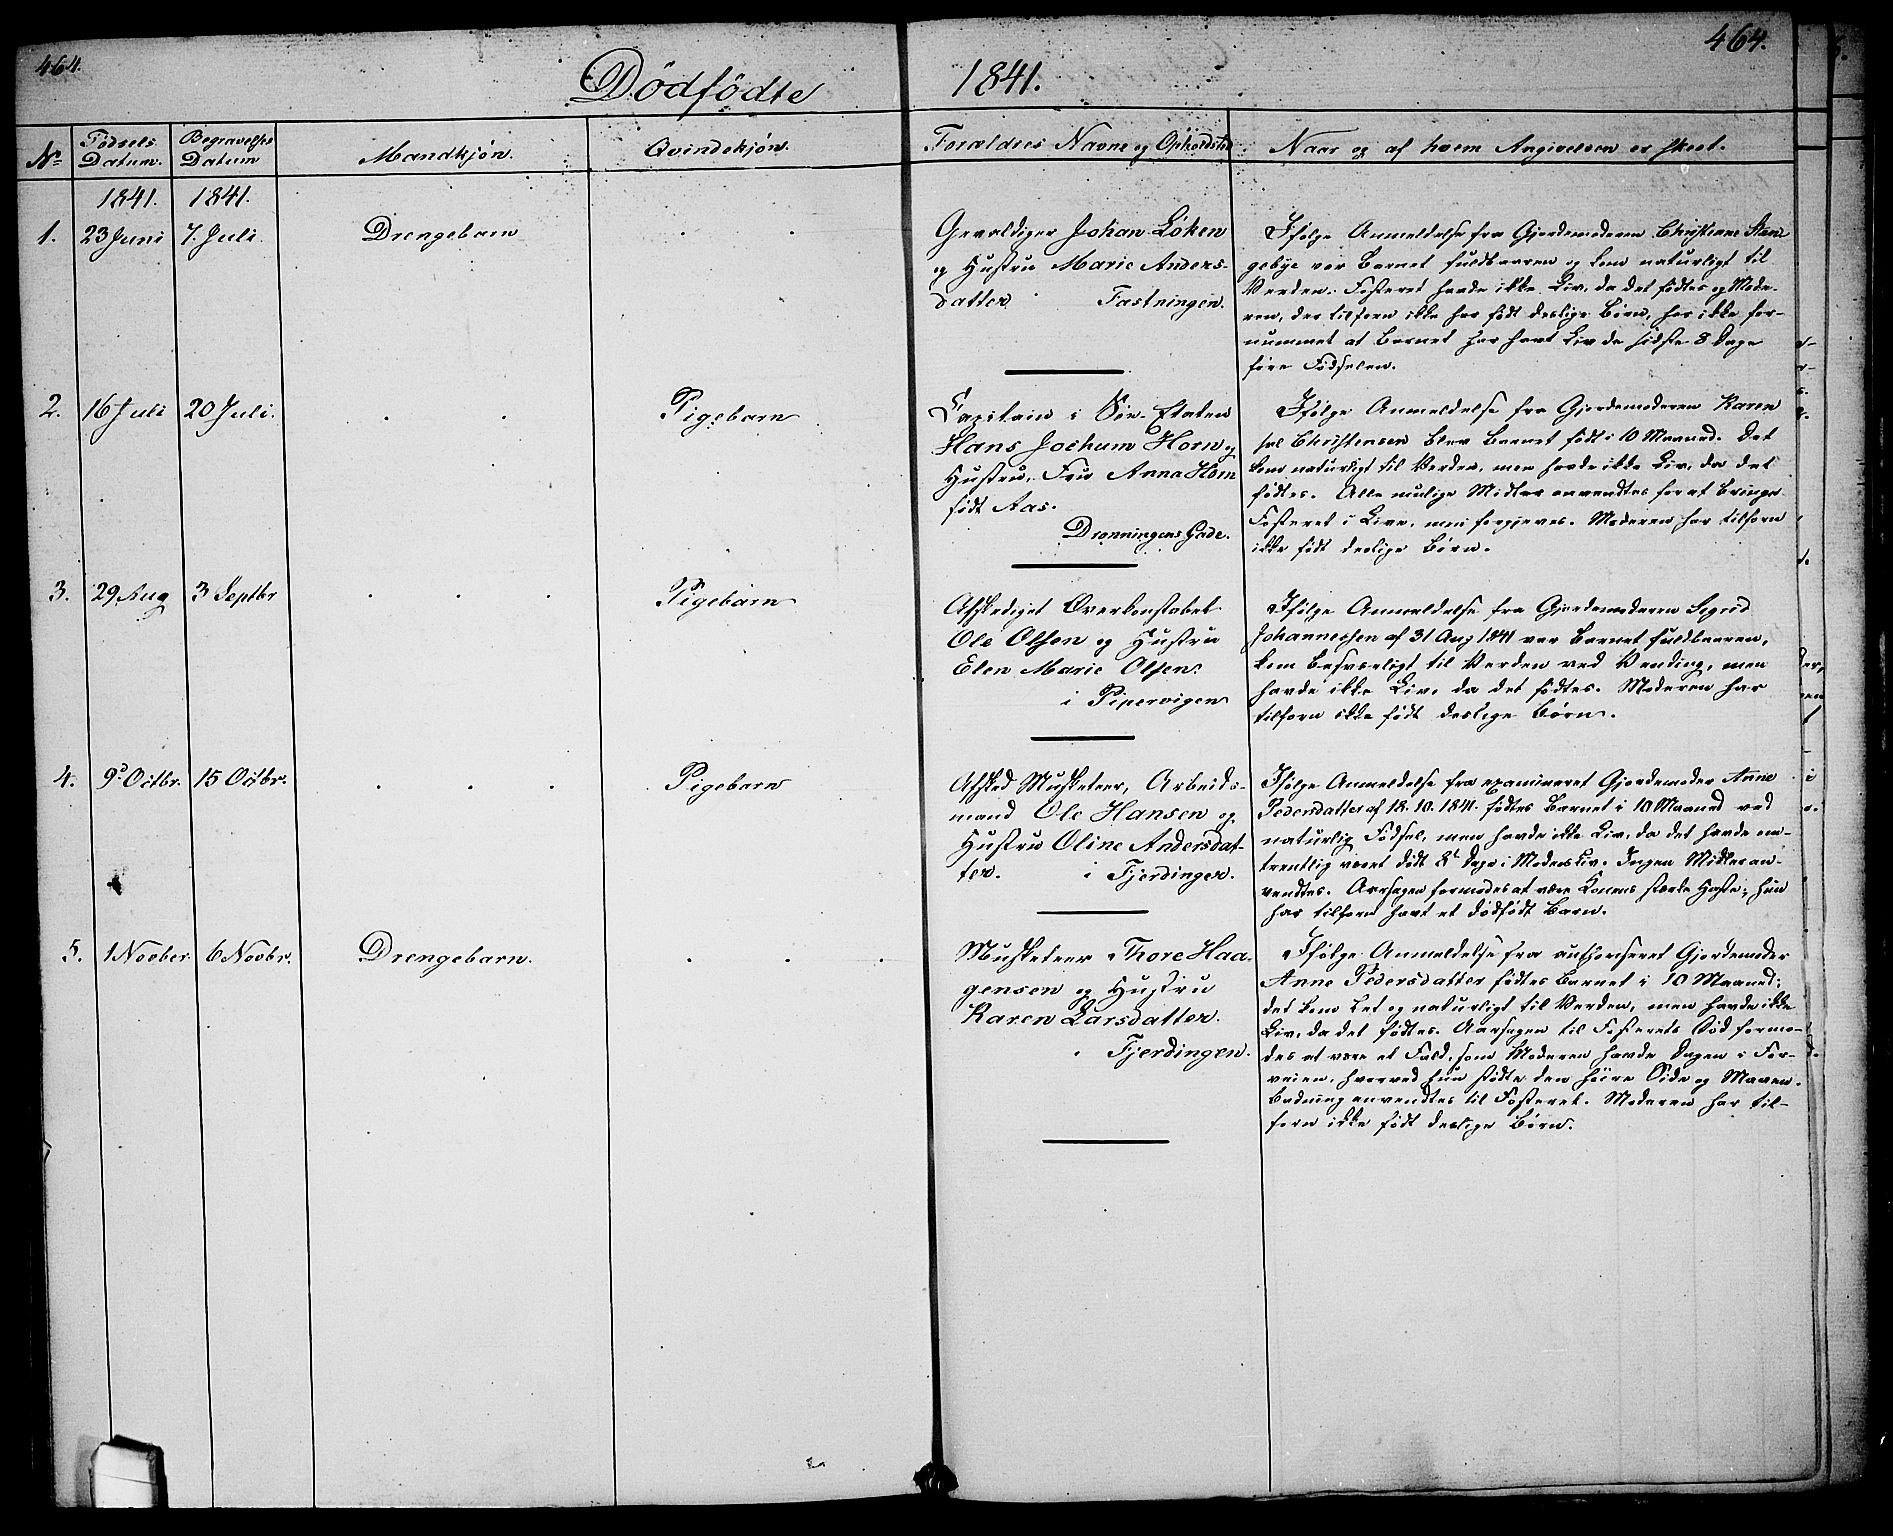 464.
464.
Dödfödte
1841.
No
Födsels Datum.
Begravelses Datum
Mandkjön.
Qvindekjön.
Forældres Navne og Opholdsted
Naar og af hvem Angivelsen er skeet.
1841. 1841.
1. 23 Juni 7. Juli. Drengebarn
Gevaldiger Johan Löken
og Hustru Marie Anders-
datter Fæstningen.
Ifölge Anmeldelse fra Gjordemoderen Christiane Stan
gebye var Barnet fuldbaaren og kom naturligt til
Verden. Fosteret havde ikke Liv, da det födtes og Mode-
ren, der tilforn ikke har födt deslige Börn, har ikke for-
nummet at Barnet har havt Liv de sidste 8 Dage
före Födselen.
2. 16 Juli 20 Juli. Pigebarn
Capitain i Söe-Etaten
Hans Jochum Horn og
Hustru, Fru Anna Horn
född Aas.
Dronningens Gade.
Ifölge Anmeldelse fra Gjordemoderen Karen
sal Christensen blev Barnet födt i 10 Maaned. Det
kom naturligt til Verden, men havde ikke Liv, da det
födtes. Alle mulige Midler anvendtes for at bringe
Fosteret i Live, men forgjeves. Moderen har tilforn
ikke födt deslige Börn.
3. 29 Aug 3 Septbr Pigebarn
Afskediget Overkonstabel
Ole Olsen og Hustru
Elen Marie Olsen.
i Pipervigen
Ifölge Anmeldelse fra Gjordemoderen Sigrid
Johannessen af 31 Aug 1841 var Barnet fuldbaaren,
kom besværligt til Verden ved Vending, men
havde ikke Liv, da det födtes. Moderen har
tilforn ikke födt deslige Börn.
4. 9d Octbr. 15 Octbr. Pigebarn
Afsked Musketeer, Arbeids-
mand Ole Hansen og
Hustru Oline Andersdat-
ter. i Fjerdingen.
Ifölge Anmeldelse fra examineret Gjordemoder Anne
Pedersdatter af 18. 10. 1841. födtes Barnet i 10 Maaned ved
naturlig Födsel, men havde ikke Liv, da det havde om-
trentlig været dödt 8t Dage i Moders Liv. Ingen Midler an-
vendtes. Aarsagen formodes at være Konens stærke Hoste; hun
har tilforn havt et dödfödt Barn.
5. 1 Novber. 6 Novbr. Drengebarn.
Musketeer Thore Haa-
gensen og Hustru
Karen Larsdatter.
i Fjerdingen.
Ifölge Anmeldelse fra authoriseret Gjordemoder
Anne Pedersdatter födtes Barnet i 10 Maaned;
det kom let og naturligt til Verden, men havde ikke
Liv, da det födtes. Aarsagen til Fosterets Död formo-
des at være et Fald, som Moderen havde Dagen i For-
veien, hvorved hun stödte den höire Side og Maven.
Badning anvendtes til Fosteret. Moderen har til-
forn ikke födt deslige Börn.